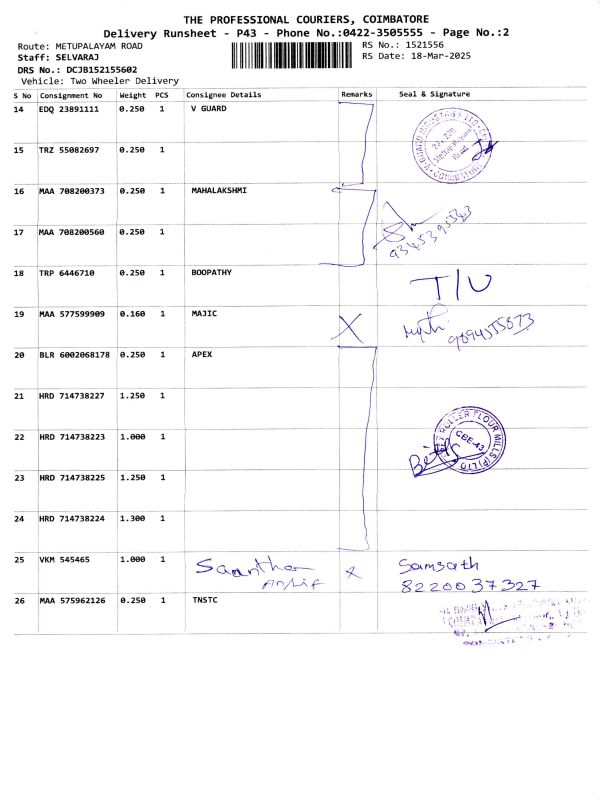 THE PROFESSIONAL COURIERS, COIMBATORE
Delivery Runsheet - P43 - Phone No.:0422-3505555 - Page No.:2
Route: METUPALAYAM ROAD
RS No.: 1521556
Staff: SELVARAJ
RS Date: 18-Mar-2025
DRS No.: DCJB152155602
Vehicle: Two Wheeler Delivery
S No Consignment No Weight PCS Consignee Details Remarks Seal & Signature
14 EDQ 23891111 0.250 1 V GUARD
15 TRZ 55082697 0.250 1
16 MAA 708200373 0.250 1 MAHALAKSHMI
17 MAA 708200560 0.250 1
9345395543
18 TRP 6446710 0.250 1 BOOPATHY T/U
19 MAA 577599909 0.160 1 MAJIC X
20 BLR 6002068178 0.250 1 APEX
21 HRD 714738227 1.250 1
22 HRD 714738223 1.000 1
ROLLER FLOUR MILLS (P) LTD
CBE-43
23 HRD 714738225 1.250 1
24 HRD 714738224 1.300 1
25 VKM 545465 1.000 1 x
8220037327
26 MAA 575962126 0.250 1 TNSTC